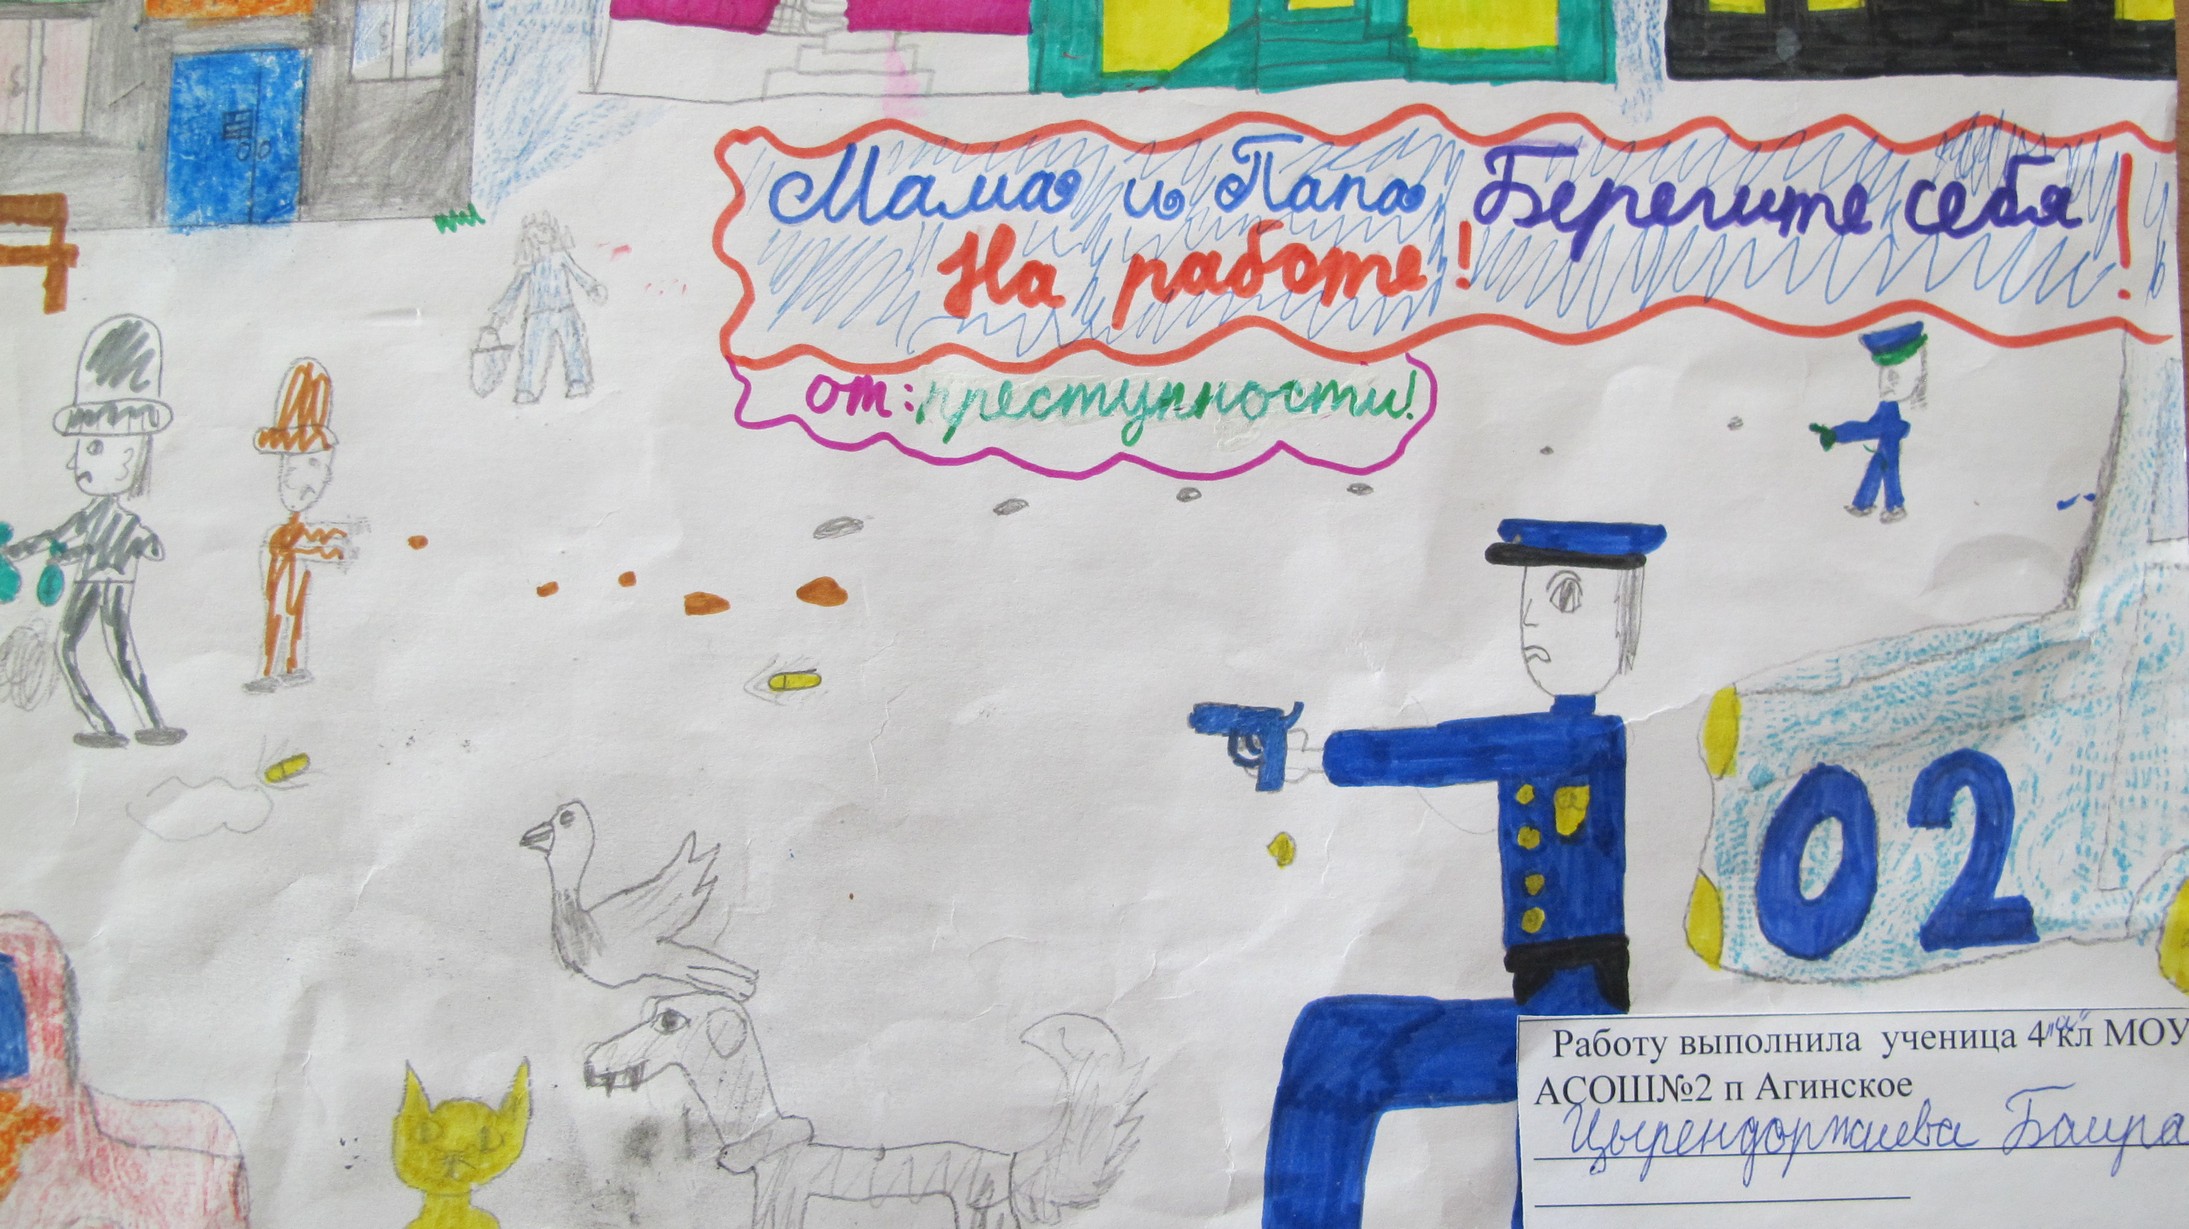 Мама и Папа Берегите себя!
На работе!
от: преступности!
02
Работу выполнила ученица 4"а"кл МОУ
АСОШ№2 п Агинское
Цырендоржиева Баира